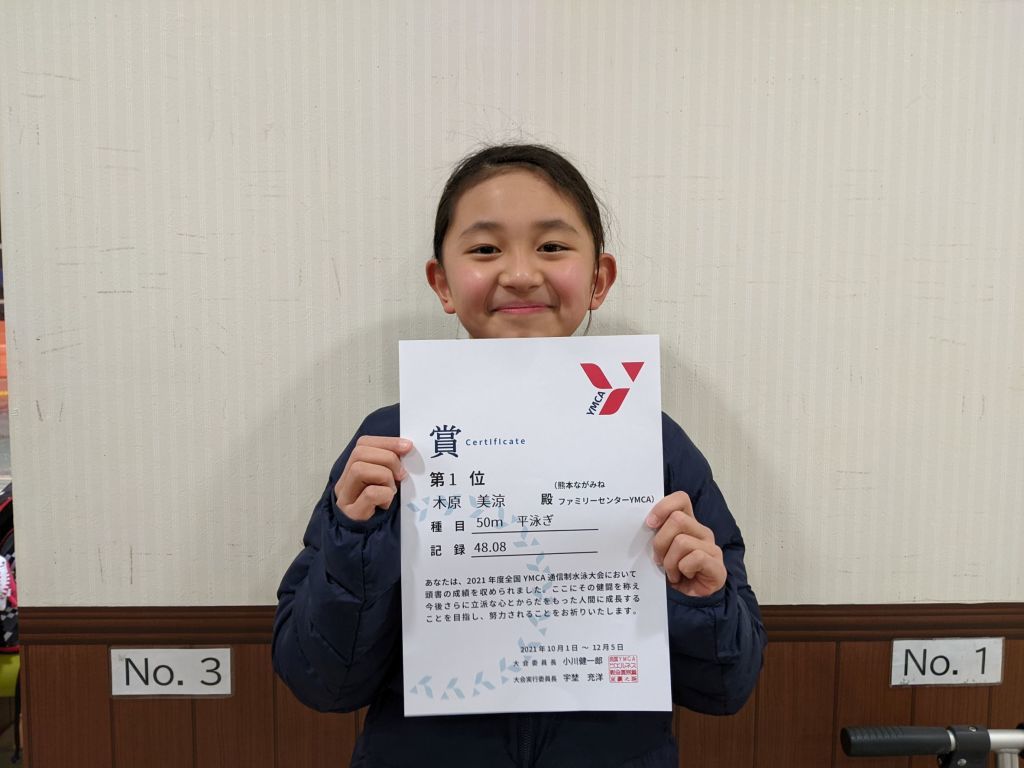 YMCA
賞 Certificate
第1 位
(熊本ながみね
木原 美涼 殿 ファミリーセンターYMCA)
種 目 50m 平泳ぎ
記 録 48.08
あなたは、2021年度全国YMCA通信制水泳大会において
頭書の成績を収められました。ここにその健闘を称え
今後さらに立派な心とからだをもった人間に成長する
ことを目指し、努力されることをお祈りいたします。
2021年10月1日 〜 12月5日
大会委員長 小川健一郎
大会実行委員長 宇埜 充洋
No. 3
No. 1